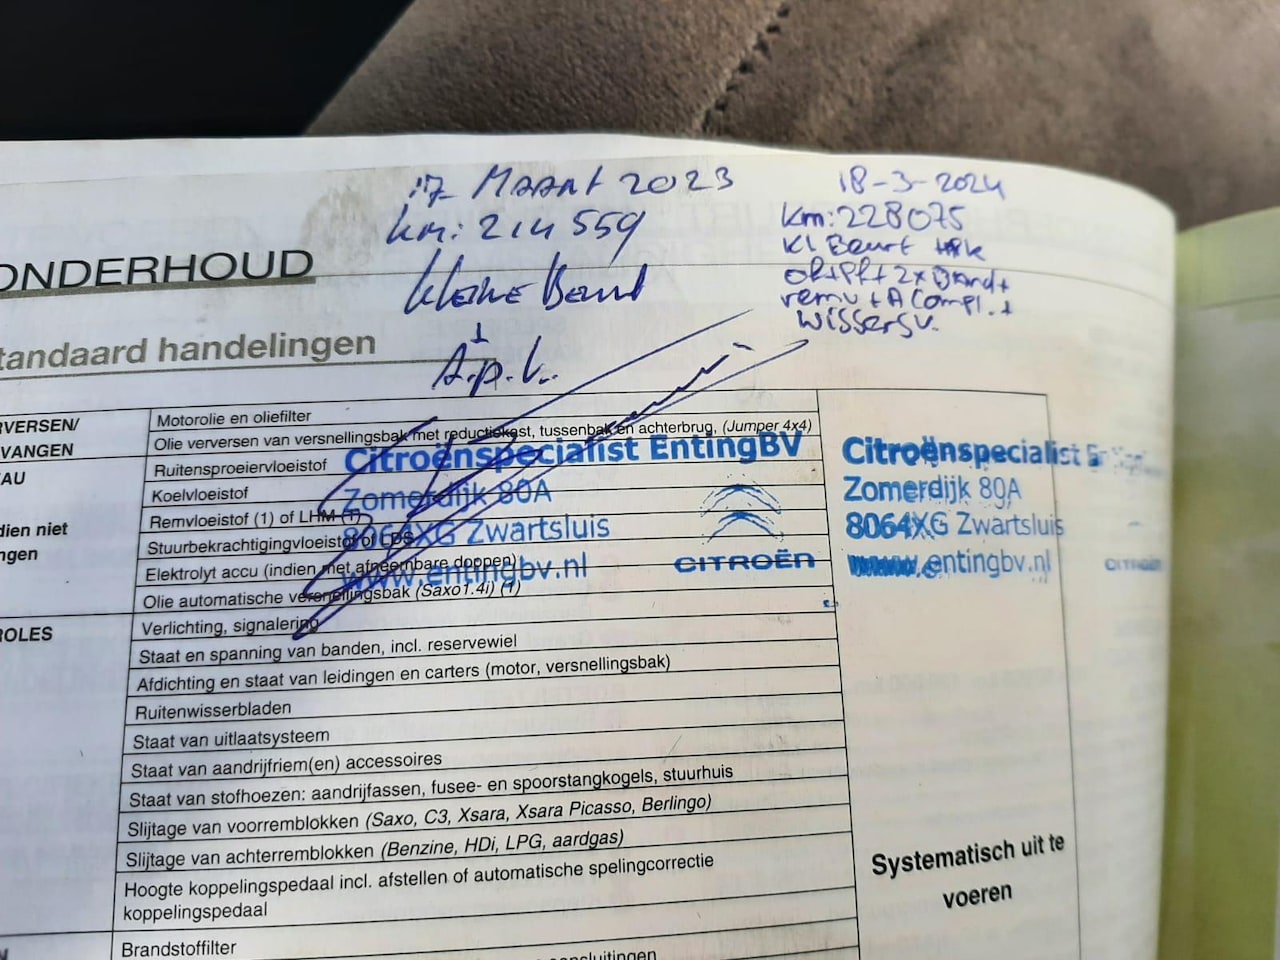 17 Maart 2023
km: 214559
kleine Beurt
+
A.p.k.
18-3-2024
km: 228075
kl Beurt
remv + A Compl. +
wissersv.
ONDERHOUD
tandaard handelingen
RVERSEN/
VANGEN
AU
dien niet
ngen
ROLES
Motorolie en oliefilter
Olie verversen van versnellingsbak met reductiekast, tussenbak en achterbrug, (Jumper 4x4)
Ruitensproeiervloeistof
Koelvloeistof
Remvloeistof (1) of LHM (1)
Stuurbekrachtigingvloeistof of LDS
Elektrolyt accu (indien met afneembare doppen)
Olie automatische versnellingsbak (Saxo1.4i) (1)
Verlichting, signalering
Staat en spanning van banden, incl. reservewiel
Afdichting en staat van leidingen en carters (motor, versnellingsbak)
Ruitenwisserbladen
Staat van uitlaatsysteem
Staat van aandrijfriem(en) accessoires
Staat van stofhoezen: aandrijfassen, fusee- en spoorstangkogels, stuurhuis
Slijtage van voorremblokken (Saxo, C3, Xsara, Xsara Picasso, Berlingo)
Slijtage van achterremblokken (Benzine, HDi, LPG, aardgas)
Hoogte koppelingspedaal incl. afstellen of automatische spelingcorrectie
koppelingspedaal
Brandstoffilter
ansluitingen
Citroënspecialist Enting BV
Zomerdijk 80A
8064XG Zwartsluis
www.entingbv.nl
CITROËN
Citroënspecialist
Zomerdijk 80A
8064XG Zwartsluis
www.entingbv.nl
CITROËN
Systematisch uit te
voeren